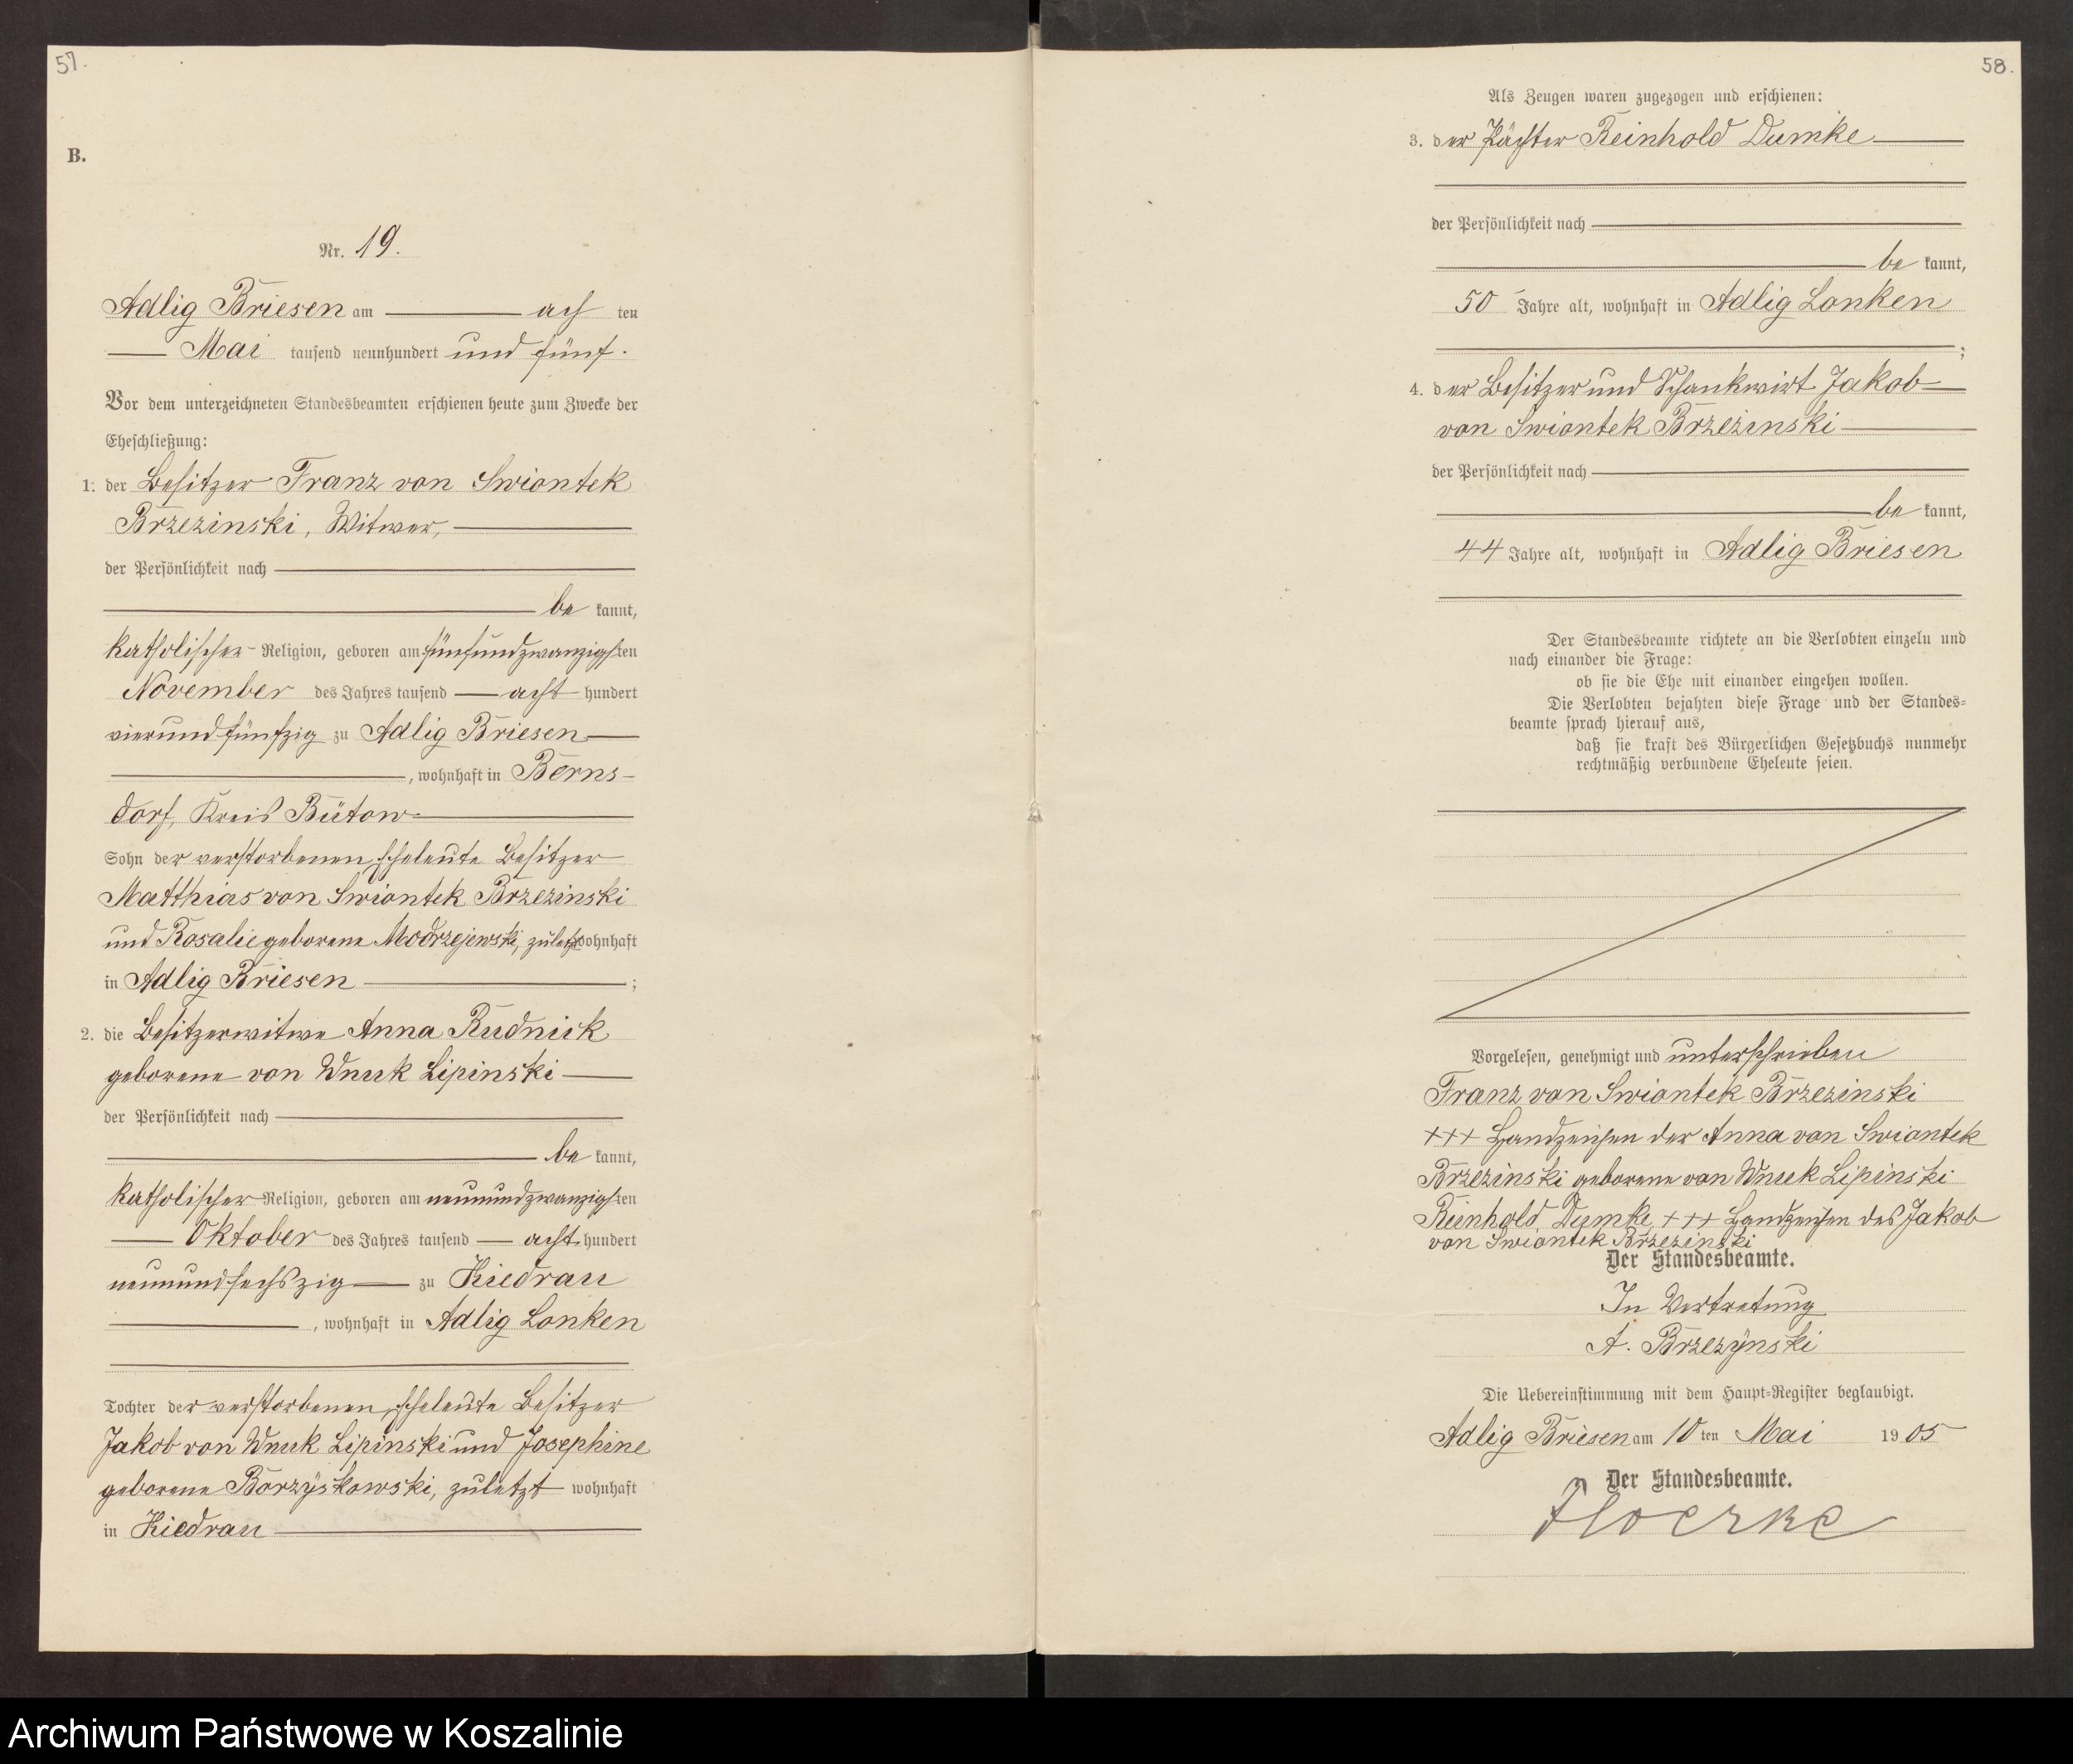 57.
B.
Nr. 19.
Adlig Briesen am ach ten
Mai tausend neunhundert und fünf.
Vor dem unterzeichneten Standesbeamten erschienen heute zum Zwecke der
Eheschließung:
1. der Besitzer Franz von Swiontek
Brzezinski, Witwer,
der Persönlichkeit nach
be kannt,
katholischer Religion, geboren am fünfundzwanzigsten
November des Jahres tausend acht hundert
vierundfünfzig zu Adlig Briesen
, wohnhaft in Berns-
dorf, Kreis Bütow
Sohn der verstorbenen Eheleute Besitzer
Matthias von Swiontek Brzezinski
und Rosalie geborene Modrzejewski, zuletzt wohnhaft
in Adlig Briesen ;
2. die Besitzerwitwe Anna Rudnick
geborene von Wnuk Lipinski
der Persönlichkeit nach
be kannt,
katholischer Religion, geboren am neunundzwanzigsten
Oktober des Jahres tausend acht hundert
neunundsechszig zu Kiedrau
, wohnhaft in Adlig Lonken
Tochter der verstorbenen Eheleute Besitzer
Jakob von Wnuk Lipinski und Josephine
geborene Borzyskowski, zuletzt wohnhaft
in Kiedrau
58.
Als Zeugen waren zugezogen und erschienen:
3. der Pächter Reinhold Dumke
der Persönlichkeit nach
be kannt,
50 Jahre alt, wohnhaft in Adlig Lonken
;
4. der Besitzer und Schankwirt Jakob
von Swiontek Brzezinski
der Persönlichkeit nach
be kannt,
44 Jahre alt, wohnhaft in Adlig Briesen
Der Standesbeamte richtete an die Verlobten einzeln und
nach einander die Frage:
ob sie die Ehe mit einander eingehen wollen.
Die Verlobten bejahten diese Frage und der Standes-
beamte sprach hierauf aus,
daß sie kraft des Bürgerlichen Gesetzbuchs nunmehr
rechtmäßig verbundene Eheleute seien.
Vorgelesen, genehmigt und unterschrieben
Franz von Swiontek Brzezinski
+++ Handzeichen der Anna von Swiontek
Brzezinski geborene von Wnuk Lipinski
Reinhold Dumke, +++ Handzeichen des Jakob
von Swiontek Brzezinski
Der Standesbeamte.
In Vertretung
A. Brzezynski
Die Uebereinstimmung mit dem Haupt-Register beglaubigt.
Adlig Briesen am 10 ten Mai 19 05
Der Standesbeamte.
Archiwum Państwowe w Koszalinie